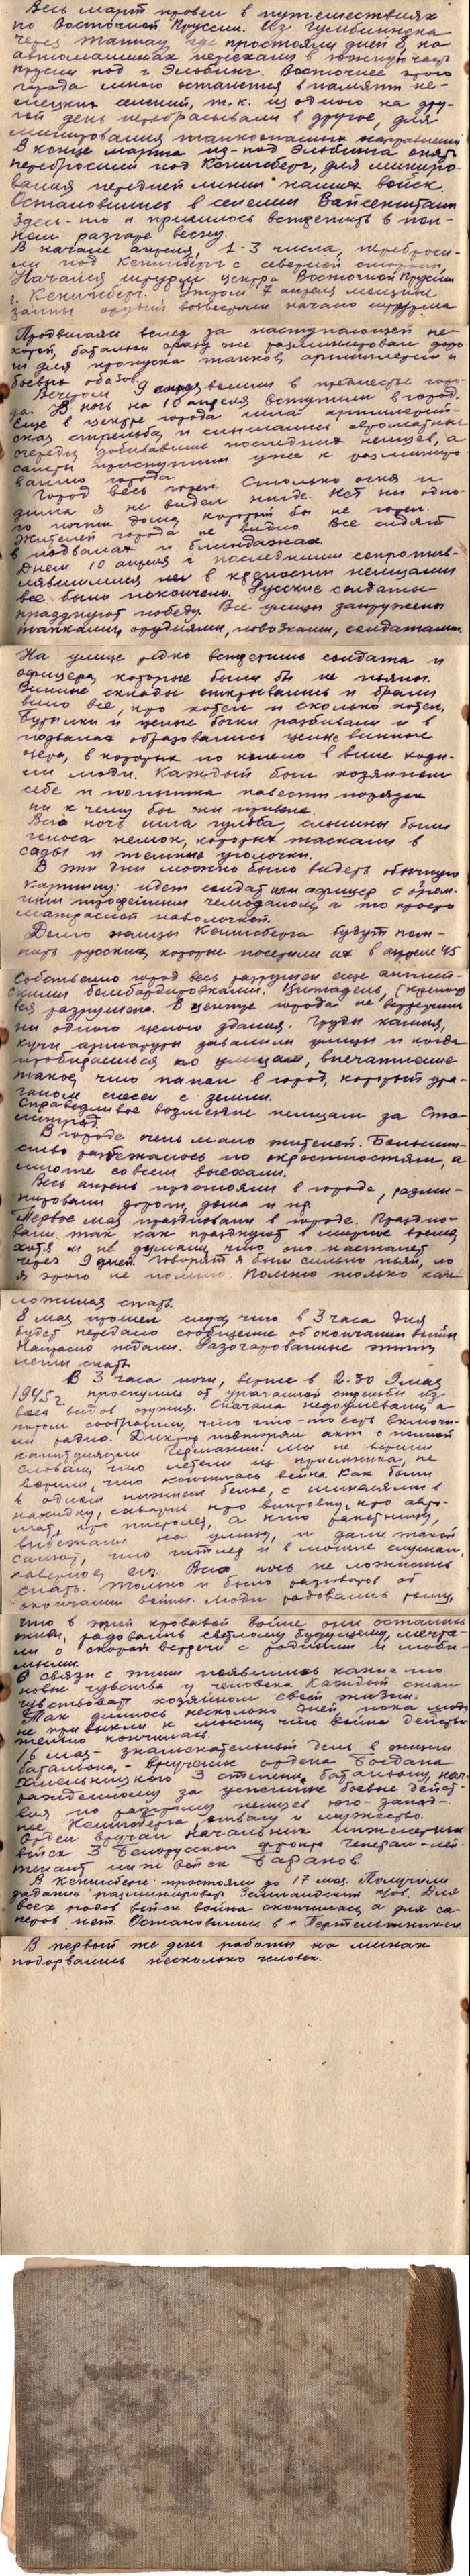 Весь март провели в путешествиях
по Восточной Пруссии. Из Гумбиннена
через где простояли дней 8, на
автомашинах переехали в южную часть
Пруссии под г. Эльбинг. Восточнее этого
города много останется в памяти не-
мецких селений, т.к. из одного на дру-
гой день перебрасывали в другое, для
минирования танкоопасных направлений
В конце марта из-под Эльбинга опять
перебросили под Кенигсберг, для миниро-
вания передней линии наших войск.
Остановились в селении
Здесь-то и пришлось встретить в пол-
ном разгаре весну.
В начале апреля, 1-3 числа, переброси-
ли под Кенигсберг с северной стороны.
Начался штурм центра Восточной Пруссии
г. Кенигсберг. Утром 7 апреля мощные
залпы орудий возвестили начало штурма
Продвигаясь вслед за наступающей пе-
хотой, батальон сразу же разминировал доро-
ги для пропуска танков, артиллерии и
боевых обозов.
Вечером 9 вошли в предместье горо-
да. В ночь на 10 апреля вступили в город.
Еще в центре города шла артиллерий-
ская стрельба и слышались автоматные
очереди, добивавшие последних немцев, а
саперы приступили уже к разминиро-
ванию города.
Город весь горел. Столько огня и
дыма я не видел нигде. Нет ни одно-
го почти дома, который бы не горел.
Жителей города не видно. Все сидят
в подвалах и блиндажах.
Днем 10 апреля с последними сопротив-
лявшимися в крепости немцами
все было покончено. Русские солдаты
празднуют победу. Все улицы запружены
танками, орудиями, повозками, солдатами.
На улице редко встретишь солдата и
офицера, которые были бы не пьяны.
Винные склады открывались и брали
вино все, кто хотел и сколько хотел,
Бутылки и целые бочки разбивали и в
подвалах образовались целые винные
озера, в которых по колено в вине ходи-
ли люди. Каждый был хозяином
себе и попытка навести порядок
ни к чему бы не привела.
Всю ночь шла гульба, слышны были
голоса немок, которых таскали в
сады и темные уголочки.
В эти дни можно было видеть обычную
картину: идет солдат или офицер с огром-
ным трофейным чемоданом, а то просто
матрасной наволочкой.
Долго немцы Кенигсберга будут пом-
нить русских, которые посетили их в апреле 45
Собственно город весь разрушен еще англий-
скими бомбардировками. Цитадель, (крепость)
вся разрушена. В центре города не встретишь
ни одного целого здания. Груды камня,
кучи арматуры завалили улицы и когда
пробираешься по улицам, впечатление
такое, что попал в город, который ура-
ганом снесен с земли.
Справедливое возмездие немцам за Ста-
линград.
В городе очень мало жителей. Большин-
ство разбежалось по окрестностям, а
многие совсем выехали.
Весь апрель простояли в городе, разми-
нировали дороги, дома и пр.
Первое мая праздновали в городе. Праздно-
вали так как празднуют в мирное время
хотя и не думали, что оно настанет
через 9 дней. Говорят я был сильно пьян, но
я этого не помню. Помню только как
ложился спать.
8 мая прошел слух, что в 3 часа дня
будет передано сообщение об окончании войны
Напрасно ждали. Разочарованные этим,
легли спать.
В 3 часа ночи, вернее в 2.30 9 мая
1945 г. проснулись от ураганной стрельбы из
всех видов оружия. Сначала недоумевали, а
потом сообразили, что что-то есть включи-
ли радио. Диктор повторял акт о полной
капитуляции Германии. Мы не верили
словам, что летели из приемника, не
верили, что кончилась война. Как были
в одном нижнем белье, с шинелями в
накидку, схватив кто винтовку, кто авто-
мат, кто пистолет, а кто ракетницу,
выбежали на улицу, и дали такой
салют, что Гитлер и в могиле слушал,
наверное его. Всю ночь не ложились
спать. Только и было разговоров об
окончании войны. Люди радовались тому,
что в этой кровавой войне они остались
живы, радовались светлому будущему, мечта-
ли о скорой встрече с родными и люби-
мыми.
В связи с этим появились какие-то
новые чувства у человека. Каждый стал
чувствовать хозяином своей жизни.
Так длилось несколько дней пока люди
не привыкли к мысли, что война действи-
тельно кончилась.
16 мая - знаменательный день в жизни
батальона, - вручение ордена Богдана
Хмельницкого 3 степени, батальону, наг-
ражденному за успешные боевые дейст-
вия по разгрому немцев юго-запад-
нее Кенигсберга, отвагу и мужество.
Орден вручал Начальник инженерных
войск 3 Белорусского фронта генерал-лей-
тенант инж войск Баранов.
В Кенигсберге простояли до 17 мая. Получили
задание разминировать Земландский п/ов. Для
всех родов войск война окончилась, а для са-
перов нет. Остановились в с.
В первый же день работы на минах
подорвались несколько человек.